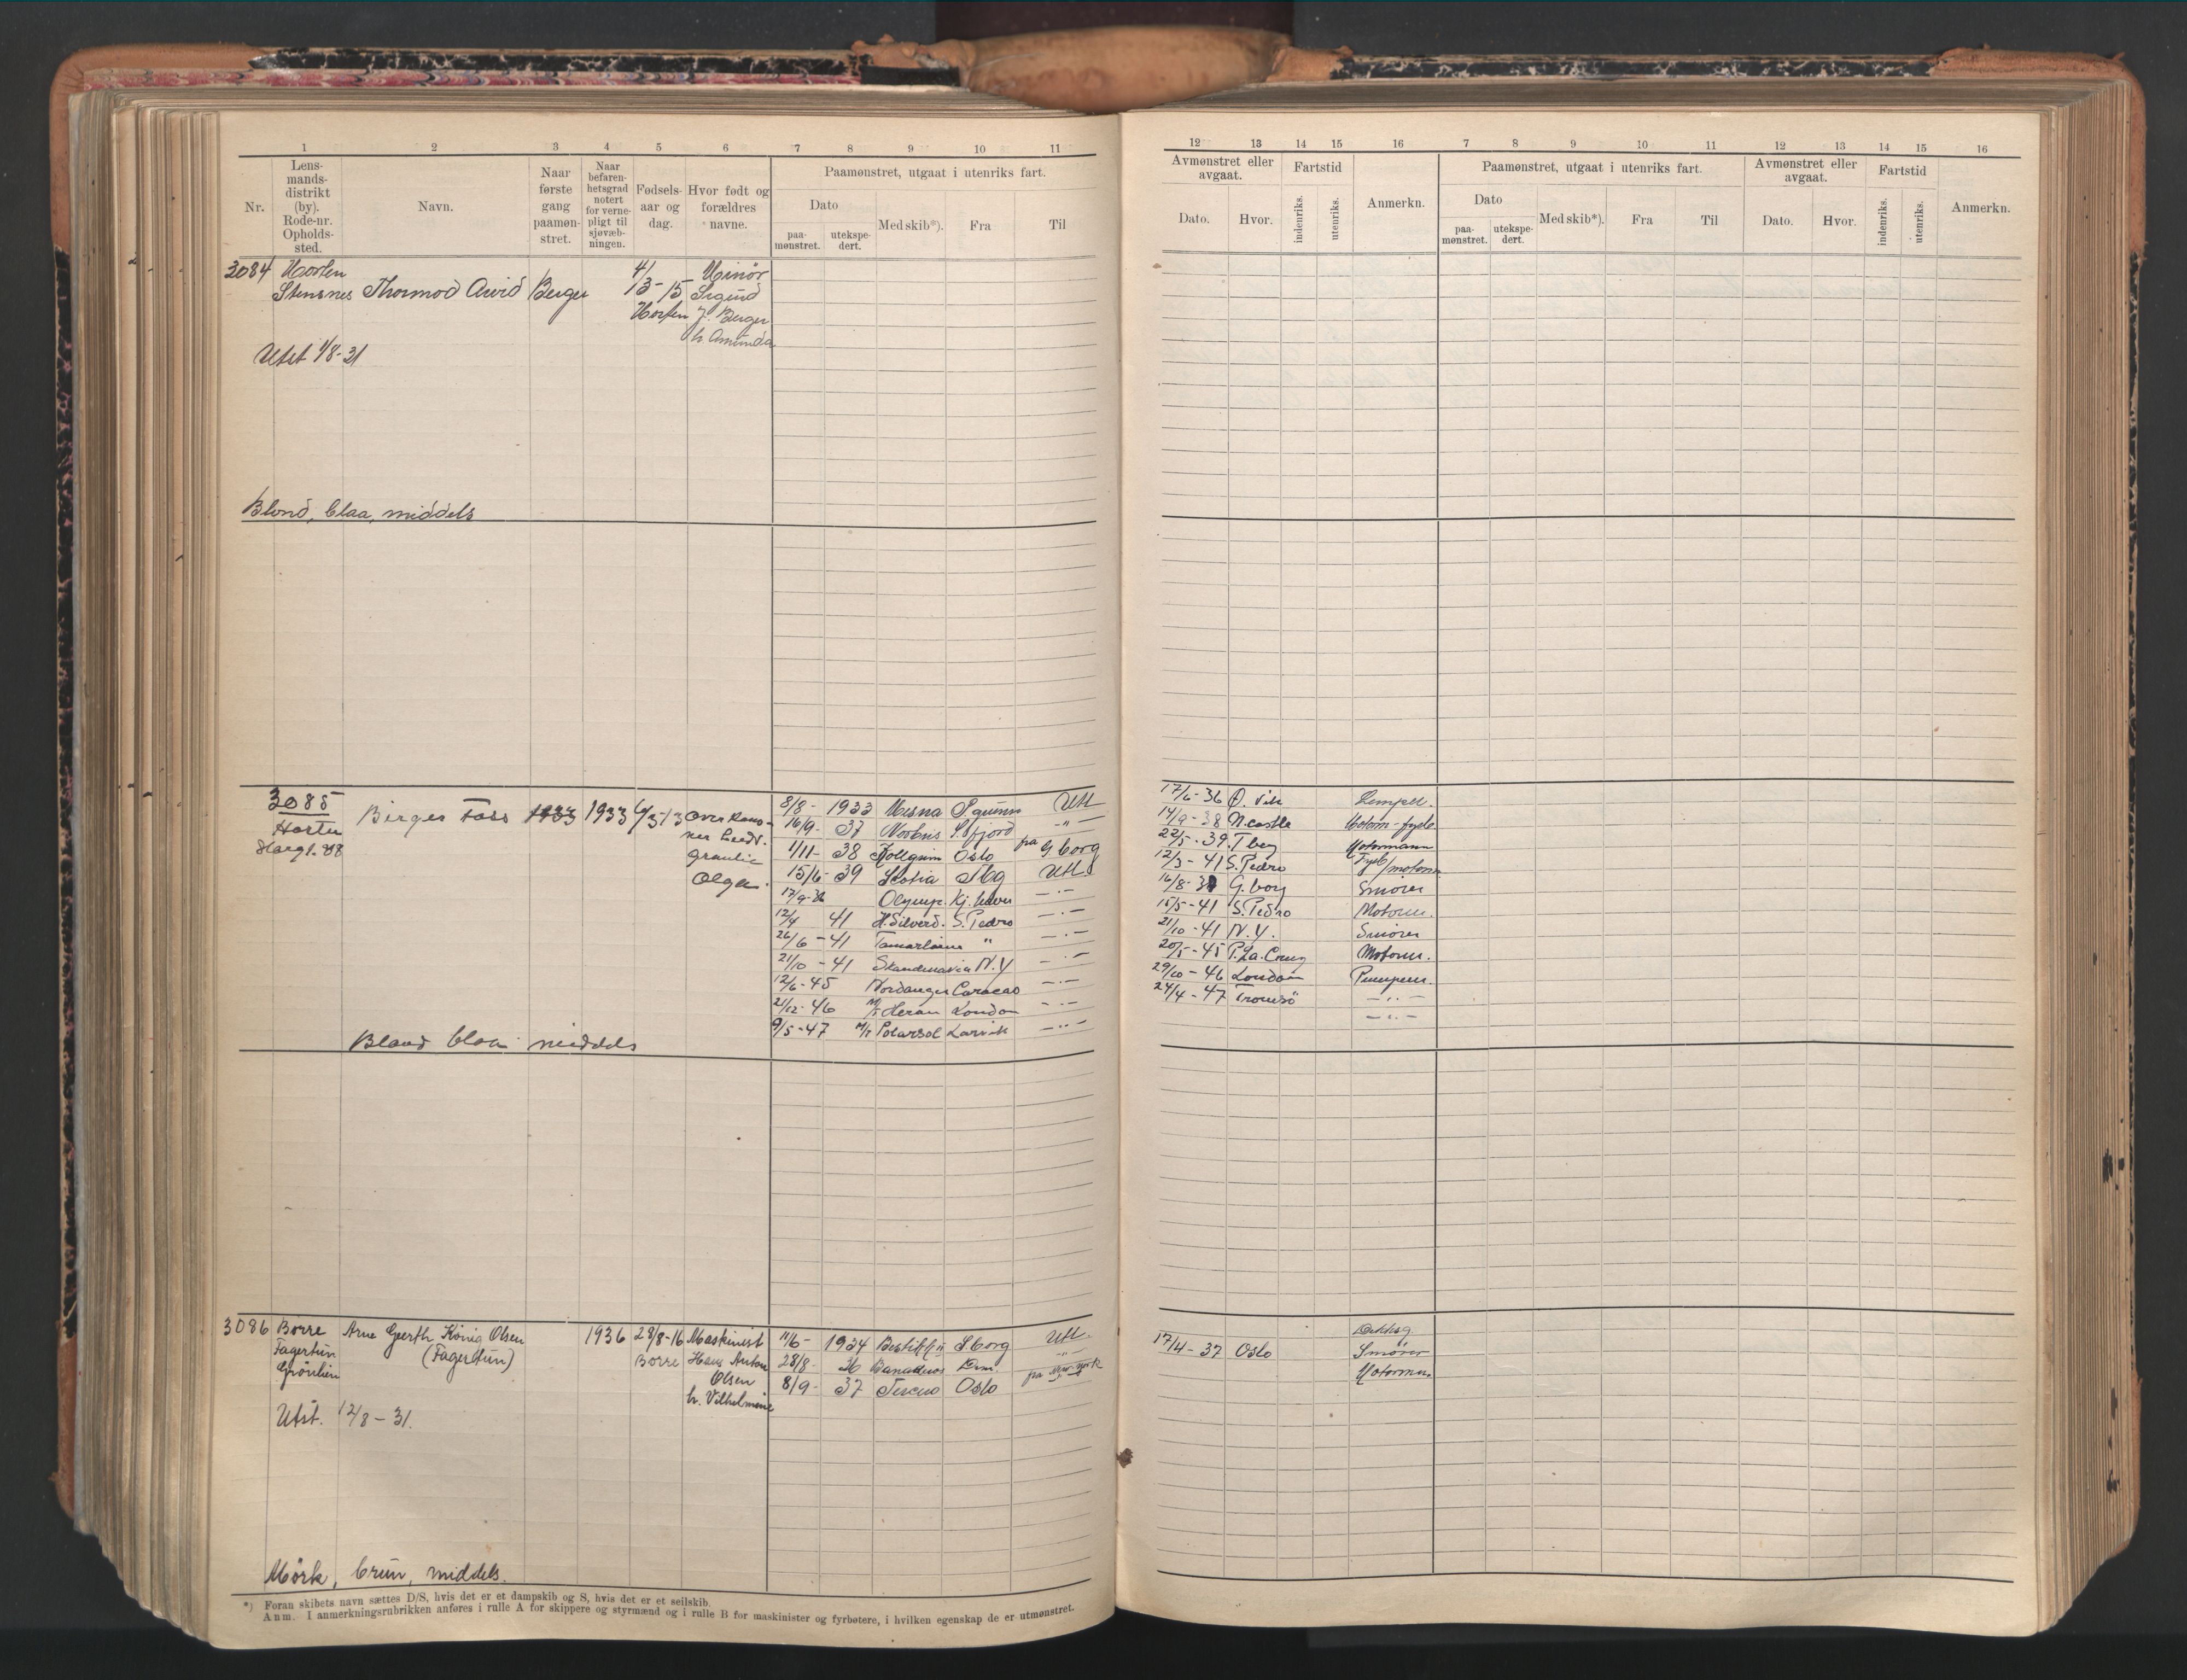 1 2 3 4 5 6 7 8 9 10 11
Nr.
Lens-
mands-
distrikt
(by).
Rode-nr.
Opholds-
sted.
Navn.
Naar
første
gang
paamøn-
stret.
Naar
befaren-
hetsgrad
notert
for verne-
pligt til
sjøvæb-
ningen.
Fødsels-
aar og
dag.
Hvor født og
forældres
navne.
Paamønstret, utgaat i utenriks fart.
Dato
paa-
mønstret.
utekspe-
dert.
Med skib*).
Fra
Til
3084 Horten 4/
Stensnes Thormod Arvid Berger 13-15 Sigurd
Horten J. Berger
h. Amunda
Utst 1/8-31
Blond, blaa, middels
3085
Horten
Birger Foss 1933 1933 6/3 13
Olga
8/8- 1933 Mesna Utl
16/9- 37 S.fjord -"-
1/11- 38 Kollgrim Oslo pa G.borg
15/6-39 Scotia Utl
17/9-36 Olymp. Kj.havn -"-
12/4 41 H.Silverd. S. Pedro -"-
26/6-41 Tamerlaine " -"-
21/10-41 Skandinavia N.Y -"-
12/6-45 Nordanger Caracas -"-
21/12-46 M/T Heran London -"-
9/5-47 M/T Polarsol Larvik -"-
Blond blaa middels
3086 Borre Arne Geerth König Olsen 1936 28/8-16 Maskinist 11/6- 1934 S.borg Utl.
Fagertun (Fagertun) Borre Hans Anton 28/8- 36 -"-
Grönlien Olsen 8/9- 37 Oslo pa New York
h. Vilhelmine
Utst. 12/8-31.
Mörk, brun, middels.
*) Foran skibets navn sættes D/S, hvis det er et dampskib og S, hvis det er et seilskib.
Anm. I anmerkningsrubrikken anføres i rulle A for skippere og styrmænd og i rulle B for maskinister og fyrbøtere, i hvilken egenskap de er utmønstret.
12 13 14 15 16 7 8 9 10 11 12 13 14 15 16
Avmønstret eller
avgaat.
Dato.
Hvor.
Fartstid
indenriks.
utenriks.
Anmerkn.
Paamønstret, utgaat i utenriks fart.
Dato
paa-
mønstret.
utekspe-
dert.
Med skib*).
Fra
Til
Avmønstret eller
avgaat.
Dato.
Hvor.
Fartstid
indenriks.
utenriks.
Anmerkn.
17/6-36 Ø.vik Lemper.
14/9-38 N.castle Motorm-fyrb
22/5-39 T berg Motormann
12/3-41 S.Pedro Fyrb/motorm
16/8-38 G.borg Smører
15/5-41 S.Pedro Motorm.
21/10-41 N.Y. Smører
20/5-45 P.La.Cruz Motorm.
29/10-46 London Pumpem.
24/4-47 Tromsö -"-
-"-
Dekksg.
17/4-37 Oslo Smører
Motorm.